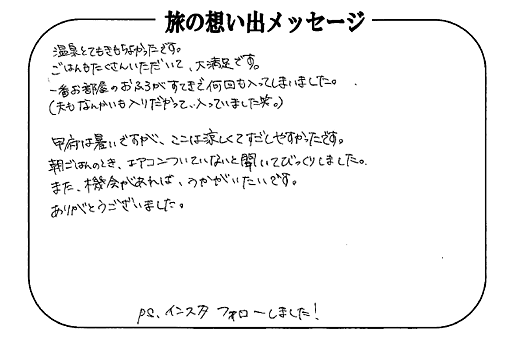 旅の想い出メッセージ
温泉とてもきもちよかったです。
ごはんもたくさんいただいて、大満足です。
一番お部屋のおふろがすてきで何回も入ってしまいました。
(夫もなんかいも入りだがって、入っていました笑。)
甲府は暑いですが、ここは涼しくてすごしやすかったです。
朝ごはんのとき、エアコンついていないと聞いてびっくりしました。
また、機会があれば、うかがいたいです。
ありがとうございました。
PS、インスタ フォローしました!